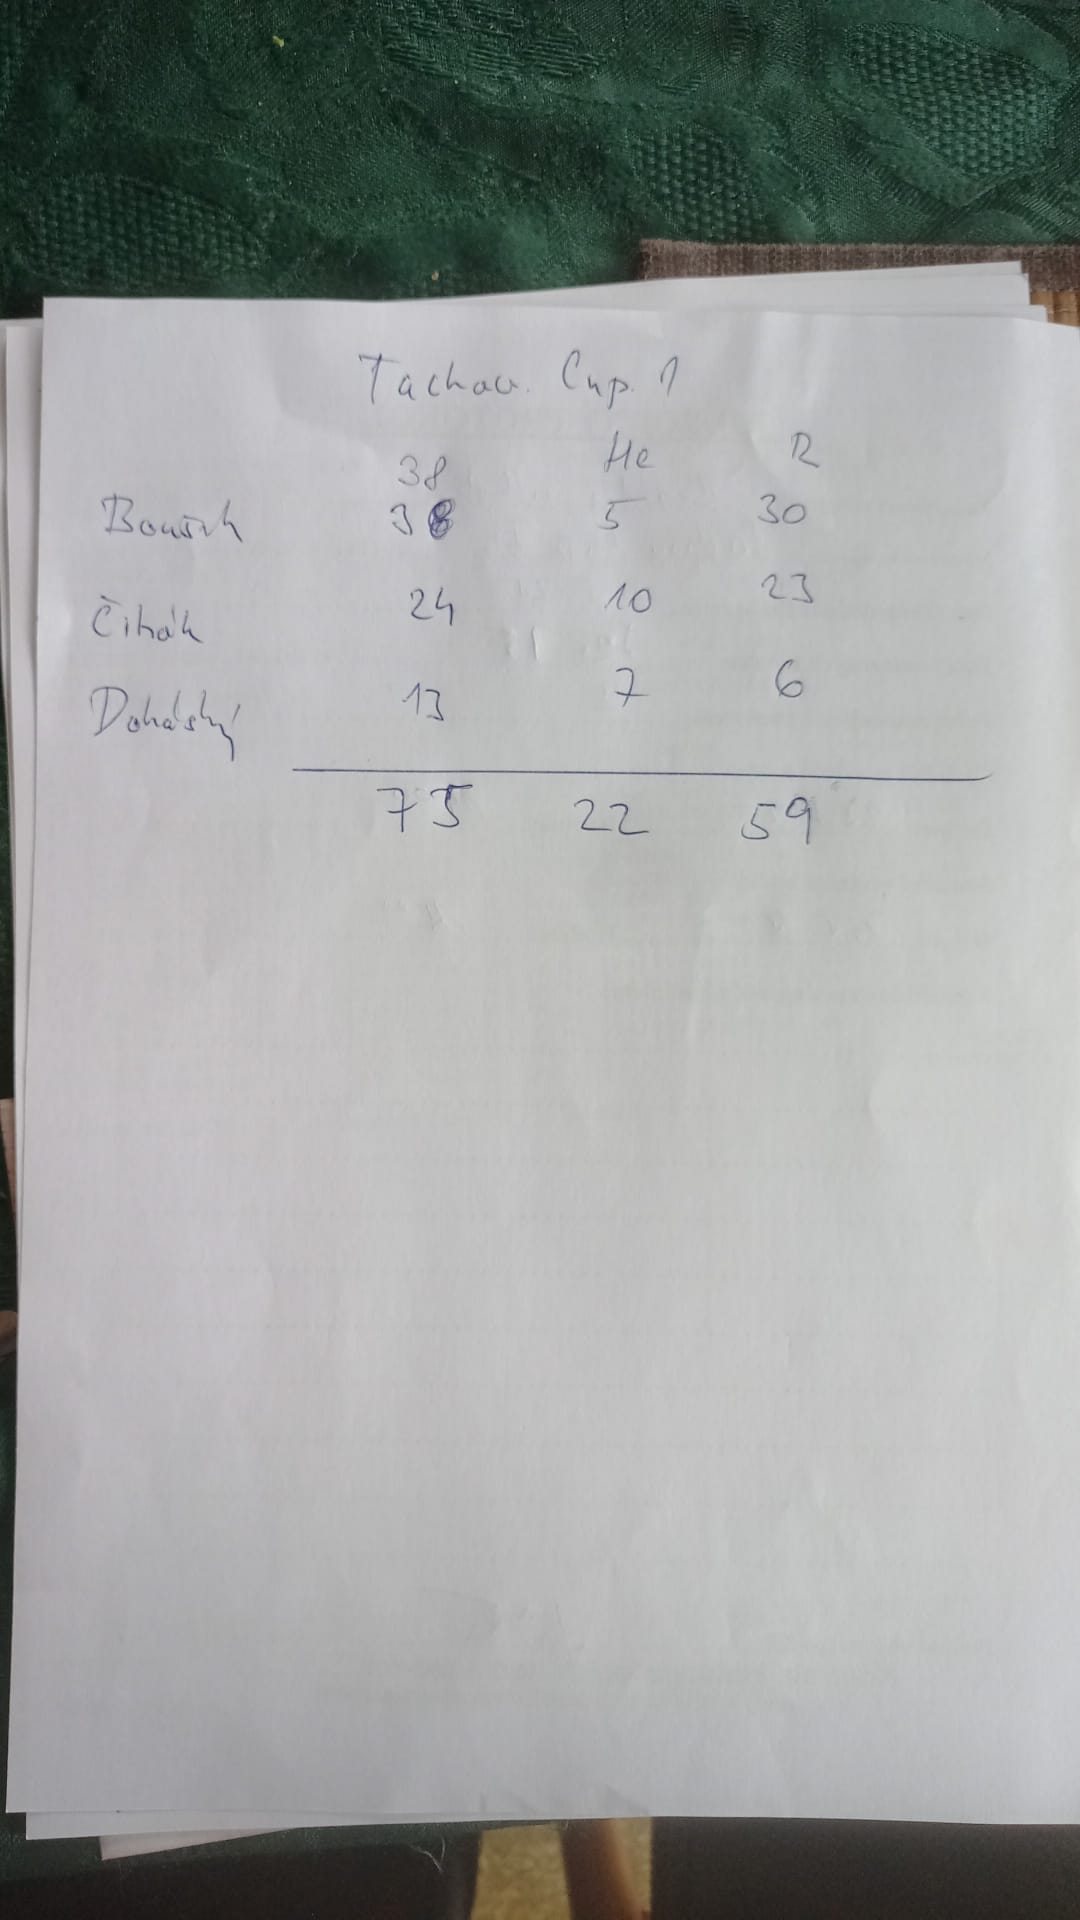 Tachov. Cup. 1
38 He R
Boušek 38 5 30
Čihák 24 10 23
Dohálský 13 7 6
75 22 59